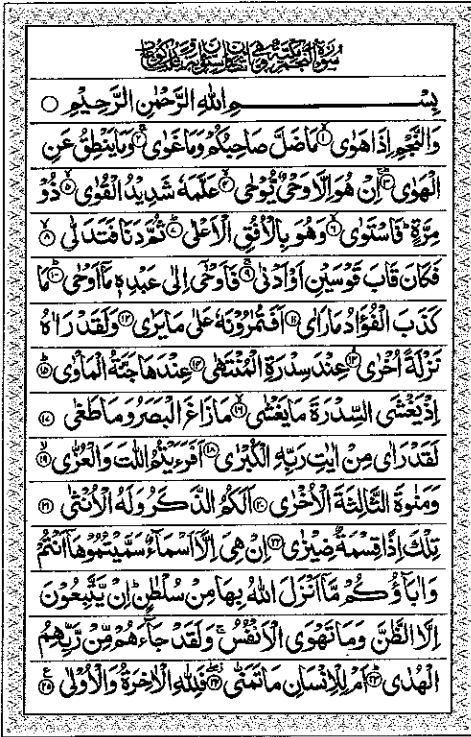 سُوْرَةُ النَّجْمِ مَكِّيَّةٌ وَّهِيَ اثْنَتَانِ وَسِتُّوْنَ اٰيَةً وَّثَلٰثُ رُكُوْعَاتٍ
بِسْمِ اللهِ الرَّحْمٰنِ الرَّحِيْمِ ○
وَالنَّجْمِ اِذَا هَوٰى ۱ مَا ضَلَّ صَاحِبُكُمْ وَمَا غَوٰى ۲ وَمَا يَنْطِقُ عَنِ
الْهَوٰى ۳ اِنْ هُوَ اِلَّا وَحْيٌ يُّوْحٰى ۴ عَلَّمَهٗ شَدِيْدُ الْقُوٰى ۵ ذُوْ
مِرَّةٍ ؕ فَاسْتَوٰى ۶ وَهُوَ بِالْاُفُقِ الْاَعْلٰى ۷ ثُمَّ دَنَا فَتَدَلّٰى ۸
فَكَانَ قَابَ قَوْسَيْنِ اَوْ اَدْنٰى ۹ فَاَوْحٰٓى اِلٰى عَبْدِهٖ مَآ اَوْحٰى ۱۰ مَا
كَذَبَ الْفُؤَادُ مَا رَاٰى ۱۱ اَفَتُمٰرُوْنَهٗ عَلٰى مَا يَرٰى ۱۲ وَلَقَدْ رَاٰهُ
نَزْلَةً اُخْرٰى ۱۳ عِنْدَ سِدْرَةِ الْمُنْتَهٰى ۱۴ عِنْدَهَا جَنَّةُ الْمَاْوٰى ۱۵
اِذْ يَغْشَى السِّدْرَةَ مَا يَغْشٰى ۱۶ مَا زَاغَ الْبَصَرُ وَمَا طَغٰى ۱۷
لَقَدْ رَاٰى مِنْ اٰيٰتِ رَبِّهِ الْكُبْرٰى ۱۸ اَفَرَءَيْتُمُ اللّٰتَ وَالْعُزّٰى ۱۹
وَمَنٰوةَ الثَّالِثَةَ الْاُخْرٰى ۲۰ اَلَكُمُ الذَّكَرُ وَلَهُ الْاُنْثٰى ۲۱
تِلْكَ اِذًا قِسْمَةٌ ضِيْزٰى ۲۲ اِنْ هِيَ اِلَّآ اَسْمَآءٌ سَمَّيْتُمُوْهَآ اَنْتُمْ
وَاٰبَآؤُكُمْ مَّآ اَنْزَلَ اللهُ بِهَا مِنْ سُلْطٰنٍ ؕ اِنْ يَّتَّبِعُوْنَ
اِلَّا الظَّنَّ وَمَا تَهْوَى الْاَنْفُسُ ۚ وَلَقَدْ جَآءَهُمْ مِّنْ رَّبِّهِمُ
الْهُدٰى ۲۳ اَمْ لِلْاِنْسَانِ مَا تَمَنّٰى ۲۴ فَلِلّٰهِ الْاٰخِرَةُ وَالْاُوْلٰى ۲۵